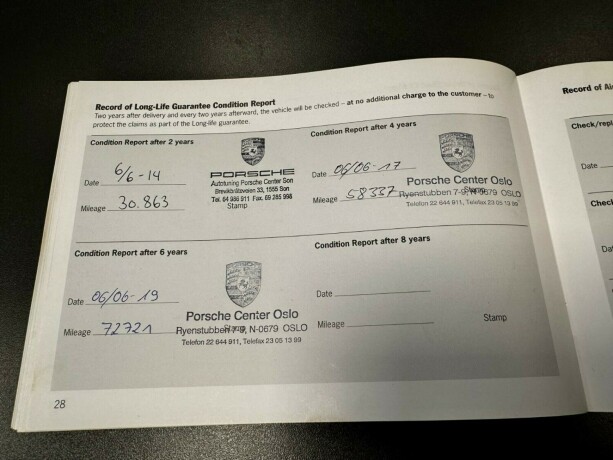 Record of Long-Life Guarantee Condition Report
Two years after delivery and every two years afterward, the vehicle will be checked – at no additional charge to the customer – to
protect the claims as part of the Long-life guarantee.
Condition Report after 2 years
Date 6/6-14
Mileage 30.863
PORSCHE
Autotuning Porsche Center Son
1555 Son
Tel. 64 986 911 Fax. 69 285 998
Stamp
Condition Report after 4 years
Date 06/06-17
Mileage 58337
Porsche Center Oslo
Ryenstubben 7-9, N-0679 OSLO
Stamp
Telefon 22 644 911, Telefax 23 05 13 99
Condition Report after 6 years
Date 06/06-19
Mileage 72721
Porsche Center Oslo
Ryenstubben 7-9, N-0679 OSLO
Stamp
Telefon 22 644 911, Telefax 23 05 13 99
Condition Report after 8 years
Date
Mileage
Stamp
28
Record of
Check/repl
Date
Check
Dat